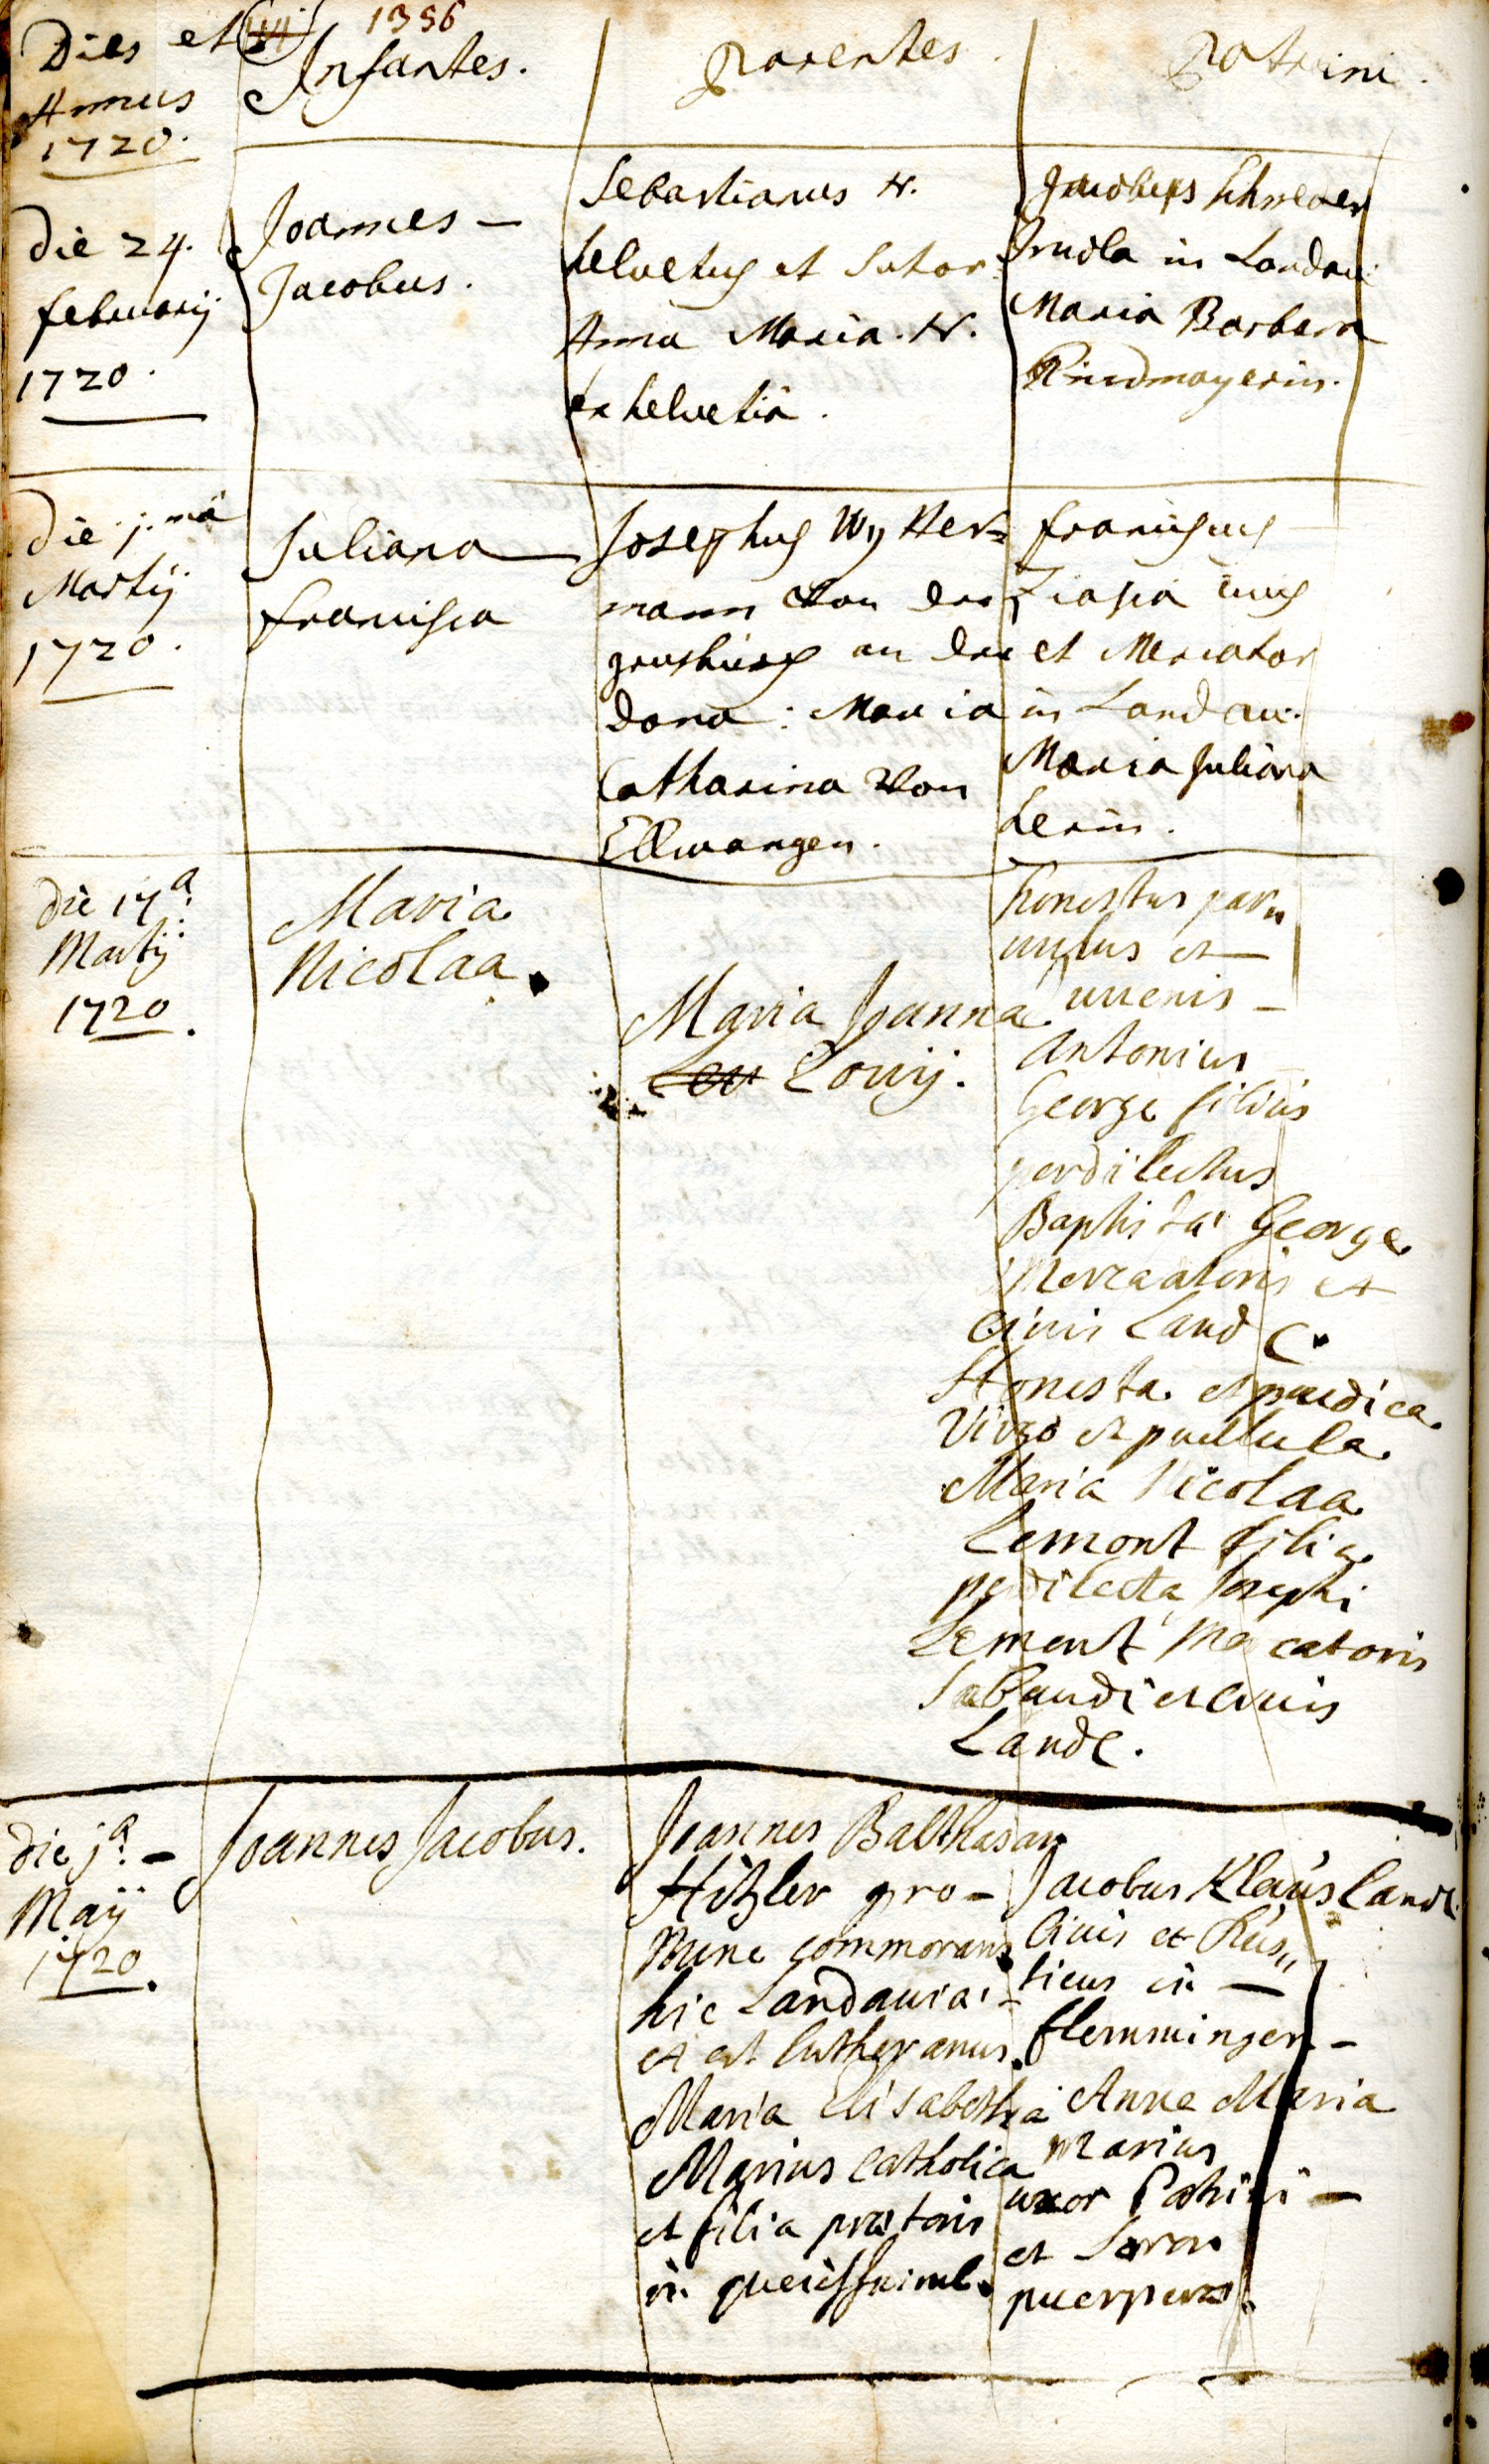 1356
Dies et
Annus
1720.
Infantes.
Parentes.
Patrini.
Die 24.
februarij
1720.
Joannes –
Jacobus.
Sebastianus N.
helvetus et Sutor
Anna Maria. N.
ex helvetia.
Jacobus
in Landau
Maria Barbara
Die j.ma
Martij
1720.
Juliana
francisca
Josephus Wy Her=
mann Von
an der
Dona: Maria
Catharina Von
Ellwangen.
franciscus
civis
et Mercator
in Landau.
Maria Juliana
Die 17a.
Martij
1720.
Maria
Nicolaa.
Maria Joanna
Louij.
honestus par„
uulus et –
iuuenis –
Antonius
George filius
perdilectus
Baptistæ George
Mercatoris et
Ciuis Land
Honesta et pudica
Virgo et puellula
Maria Nicolaa
Lemont filia
perdilecta Josephi
Lemont Mercatoris
Sabaudi et Ciuis
Land.
die ja. –
Maÿ
1720.
Joannes Jacobus.
Joannes Balthasar
Hitzler pro –
Nunc commorans
hic Landauiæ –
et est lutheranus.
Maria Elisabetha
Marius Catholica
et filia prætoris
in
Jacobus Klaus Land.
Ciuis et Rus„
ticus in –
flemmingen –
Anna Maria
Marius
uxor Patrini –
et Soror
puerperæ.